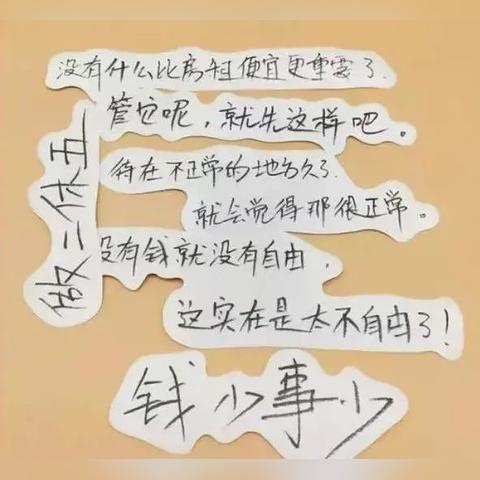 没有什么比房租便宜更重要了.
管它呢，就先这样吧。
做二休五
待在不正常的地方久了.
就会觉得那很正常。
没有钱就没有自由，
这实在是太不自由了！
钱少事少